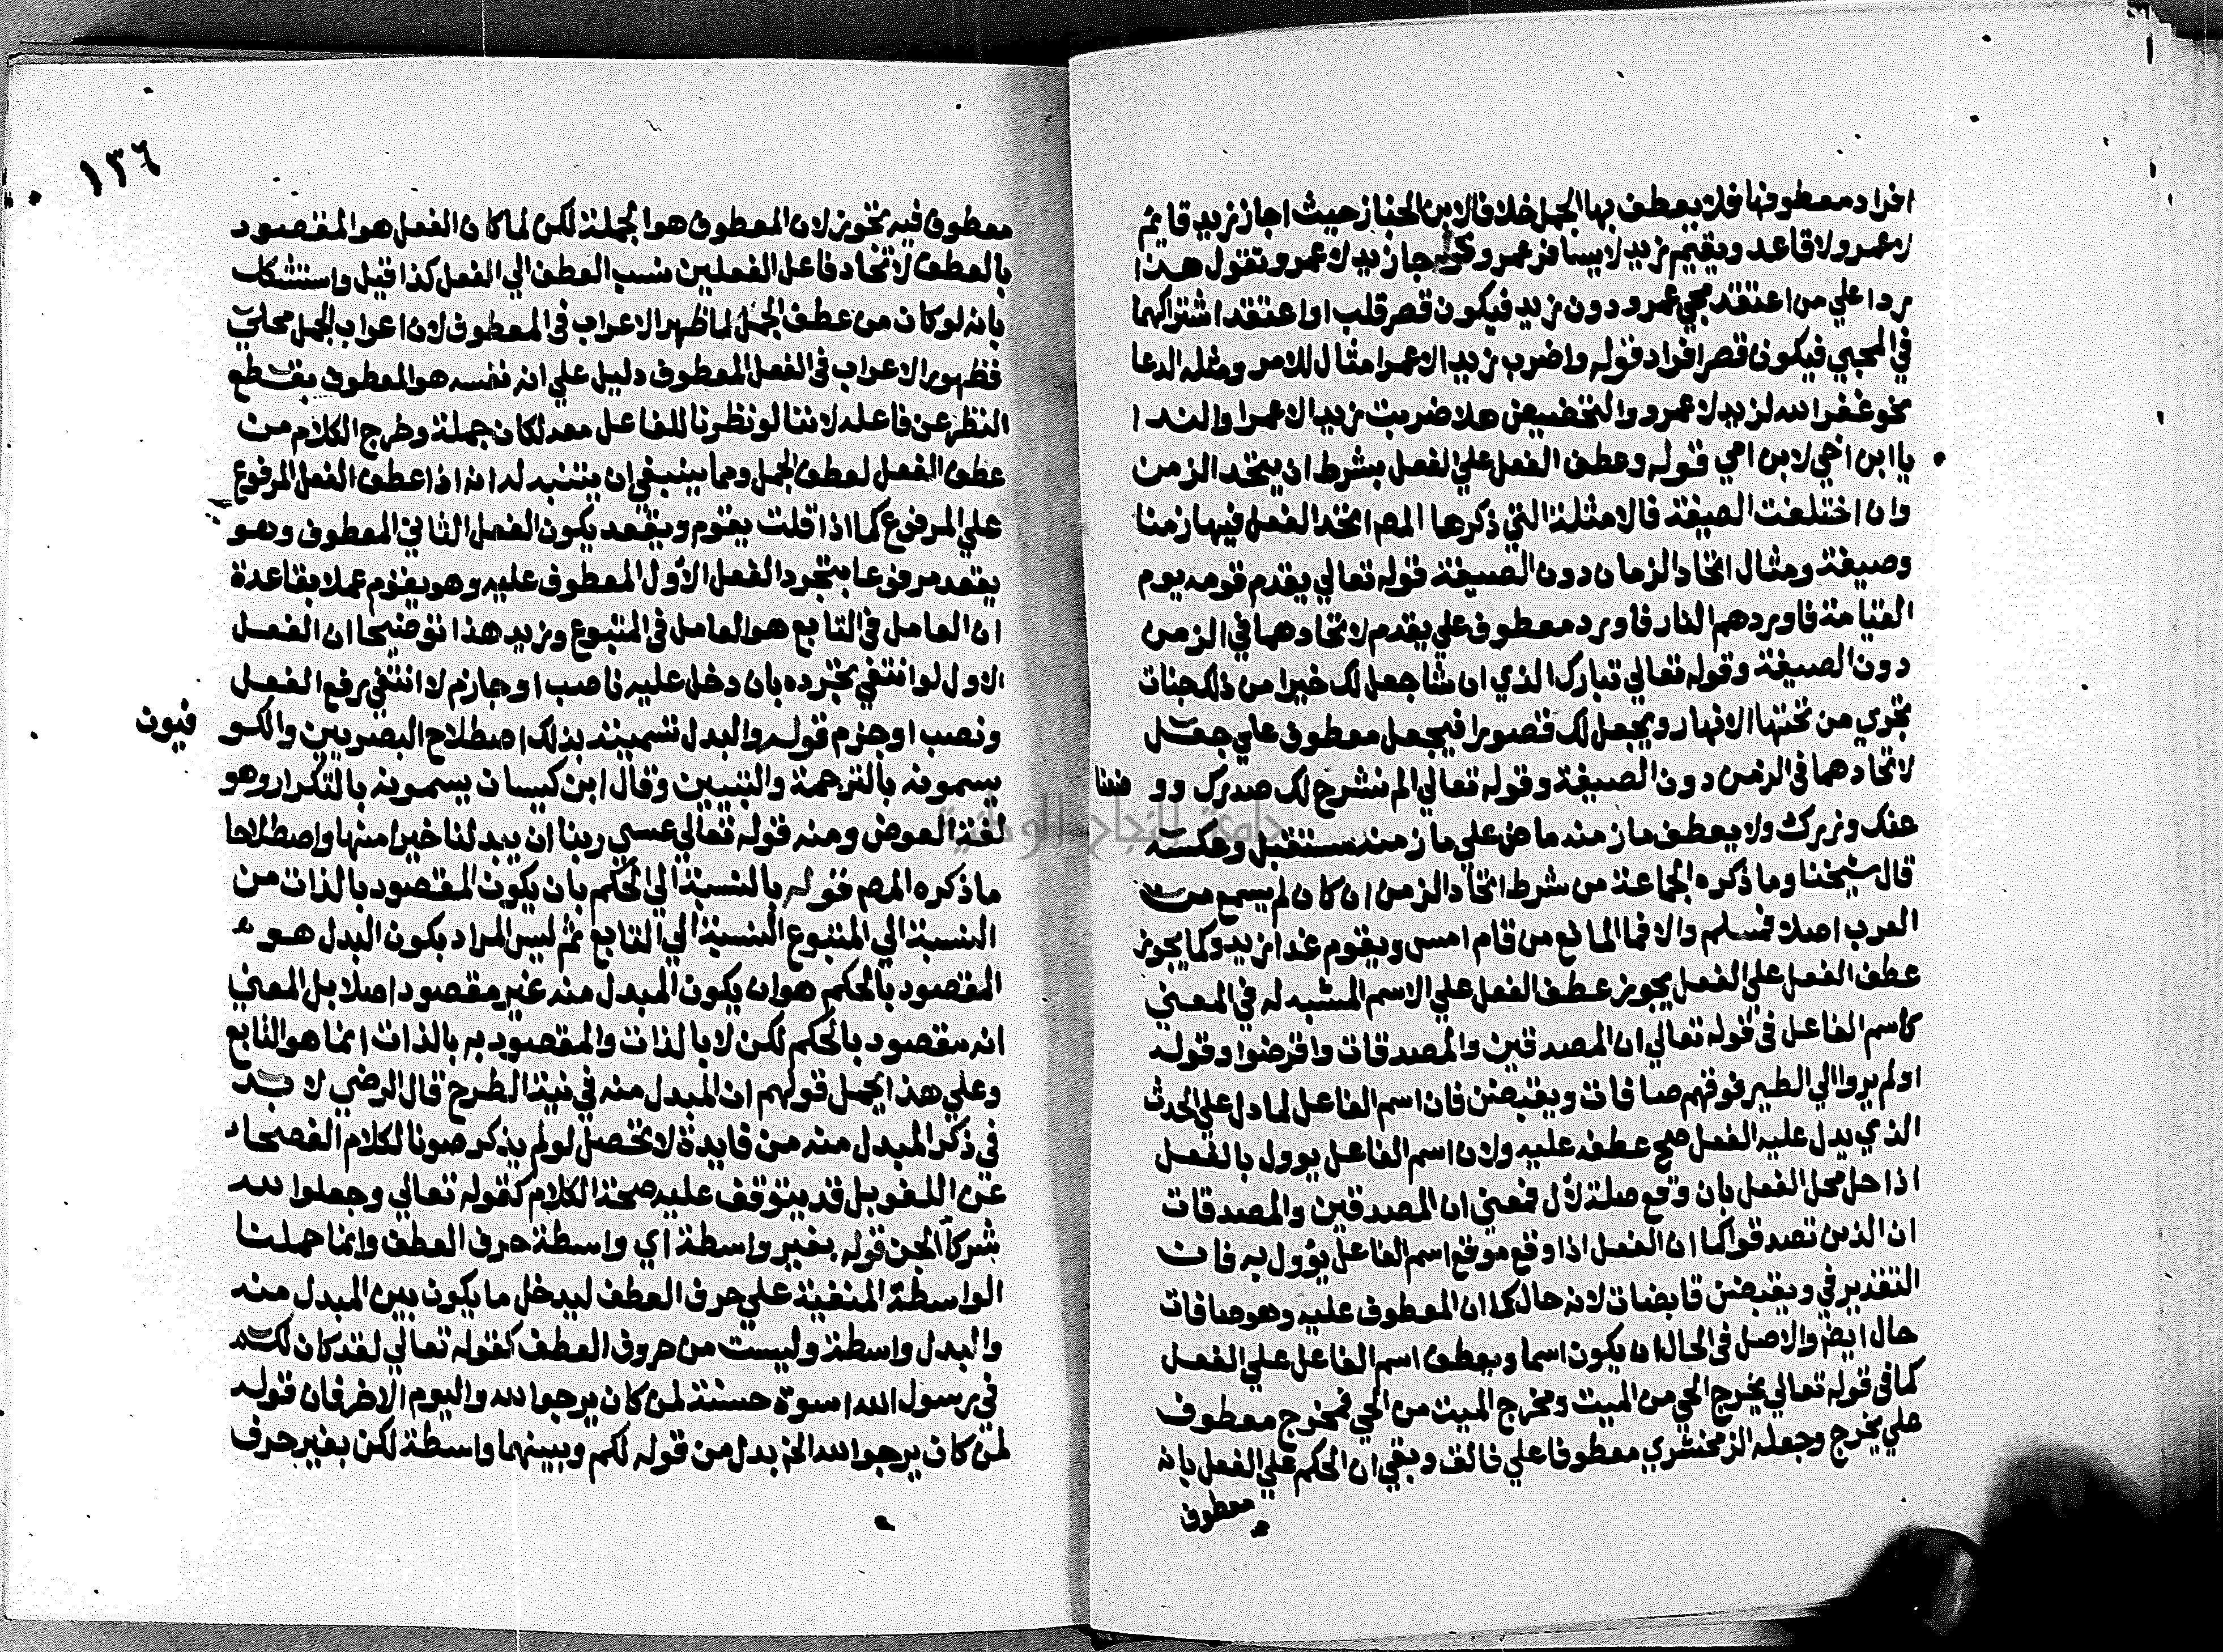 افراد معطوفها فلا يعطف بها الجمل خلافا لابن الخباز حيث اجاز زيد قايم
لا عمرو لا قاعد ويقيم زيد لا يسافر عمرو وكجا زيد لا عمرو وتقول هذا
ردا علي من اعتقد مجي عمرو دون زيد فيكون قصر قلب او اعتقد اشتراكهما
في المجي فيكون قصر افراد قوله واضرب زيد الا عمرا مثال للامر ومثله الدعا
نحو غفر الله لزيد لا عمرو والتحضيض هلا ضربت زيد الا عمرا والندا
يا ابن اخي لا ابن امي قوله وعطف الفعل علي الفعل بشرط ان يتحد الزمن
وان اختلفت الصيغة فالامثلة التي ذكرها المصم اتحد الفعل فيها زمنا
وصيغة ومثال اتحاد الزمان دون الصيغة قوله تعالي يقدم قومه يوم
القيامة فاوردهم النار فاورد معطوف علي يقدم لاتحادهما في الزمن
دون الصيغة وقوله تعالي تبارك الذي ان شا جعل لك خيرا من ذلك جنات
تجري من تحتها الانهار ويجعل لك قصورا فيجعل معطوف علي جعل
لاتحادهما في الزمن دون الصيغة وقوله تعالي الم نشرح لك صدرك وو ضعنا
عنك وزرك ولا يعطف ما زمنه ماض علي ما زمنه مستقبل وعكسه
قال شيخنا وما ذكره الجماعة من شرط اتحاد الزمن ان كان لم يسمع من
العرب اصلا فمسلم والا فما المانع من قام امس ويقوم غدا زيد وكما يجوز
عطف الفعل علي الفعل يجوز عطف الفعل علي الاسم المشبه له في المعني
كاسم الفاعل في قوله تعالي ان المصدقين والمصدقات واقرضوا وقوله
اولم يروا الي الطير فوقهم صافات ويقبضن فان اسم الفاعل لما دل علي الحدث
الذي يدل عليه الفعل صح عطفه عليه ولان اسم الفاعل يوول بالفعل
اذا حل محل الفعل بان وقع صلة لأل فمعني ان المصدقين والمصدقات
ان الذين تصدقوا كما ان الفعل اذا وقع موقع اسم الفاعل يؤول به فان
التقدير في ويقبضن قابضات لانه حال كما ان المعطوف عليه وهو صافات
حال ايضا والاصل في الحال ان يكون اسما ويعطف اسم الفاعل علي الفعل
كما في قوله تعالي يخرج الحي من الميت ومخرج الميت من الحي فمخرج معطوف
علي يخرج وجعله الزمخشري معطوفا علي فالق وبقي ان الحكم علي الفعل بانه
معطوف
١٣٦
معطوف فيه تجوز لان المعطوف هو الجملة لكن لما كان الفعل هو المقصود
بالعطف لاتحاد فاعل الفعلين نسب العطف الي الفعل كذا قيل واستشكل
بانه لو كان من عطف الجمل لما ظهر الاعراب في المعطوف لان اعراب الجمل محلي
فظهور الاعراب في الفعل المعطوف دليل علي انه نفسه هو المعطوف بقطع
النظر عن فاعله لاننا لو نظرنا للفاعل معه لكان جملة وخرج الكلام من
عطف الفعل لعطف الجمل ومما ينبغي ان يتنبه له انه اذا عطف الفعل المرفوع
علي المرفوع كما اذا قلت يقوم ويقعد يكون الفعل الثاني المعطوف وهو
يقعد مرفوعا بتجرد الفعل الأول المعطوف عليه وهو يقوم عملا بقاعدة
ان العامل في التابع هو العامل في المتبوع ويزيد هذا توضيحا ان الفعل
الاول لو انتفي تجرده بان دخل عليه ناصب او جازم لانتفي رفع الفعل
ونصب او جزم قوله والبدل تسميته بذلك اصطلاح البصريين والكو فيون
يسمونه بالترجمة والتبيين وقال ابن كيسان يسمونه بالتكرار وهو
لغة العوض ومنه قوله تعالي عسي ربنا ان يبدلنا خيرا منها واصطلاحا
ما ذكره المصم قوله بالنسبة الي الحكم بان يكون المقصود بالذات من
النسبة الي المتبوع النسبة الي التابع ثم ليس المراد بكون البدل هو
المقصود بالحكم هو ان يكون المبدل منه غير مقصود اصلا بل المعني
انه مقصود بالحكم لكن لا بالذات والمقصود به بالذات انما هو التابع
وعلي هذا يحمل قولهم ان المبدل منه في نية الطرح قال الرضي لا بد
في ذكر المبدل منه من فايدة لا تحصل لو لم يذكر صونا لكلام الفصحاء
عن اللغو بل قد يتوقف عليه صحة الكلام كقوله تعالي وجعلوا لله
شركاء الجن قوله بغير واسطة اي واسطة حرف العطف وانما حملنا
الواسطة المنفية علي حرف العطف ليدخل ما يكون بين المبدل منه
والبدل واسطة وليست من حروف العطف كقوله تعالي لقد كان لكم
في رسول الله اسوة حسنة لمن كان يرجوا لله واليوم الاخر فان قوله
لمن كان يرجوا لله الخ بدل من قوله لكم وبينهما واسطة لكن بغير حرف